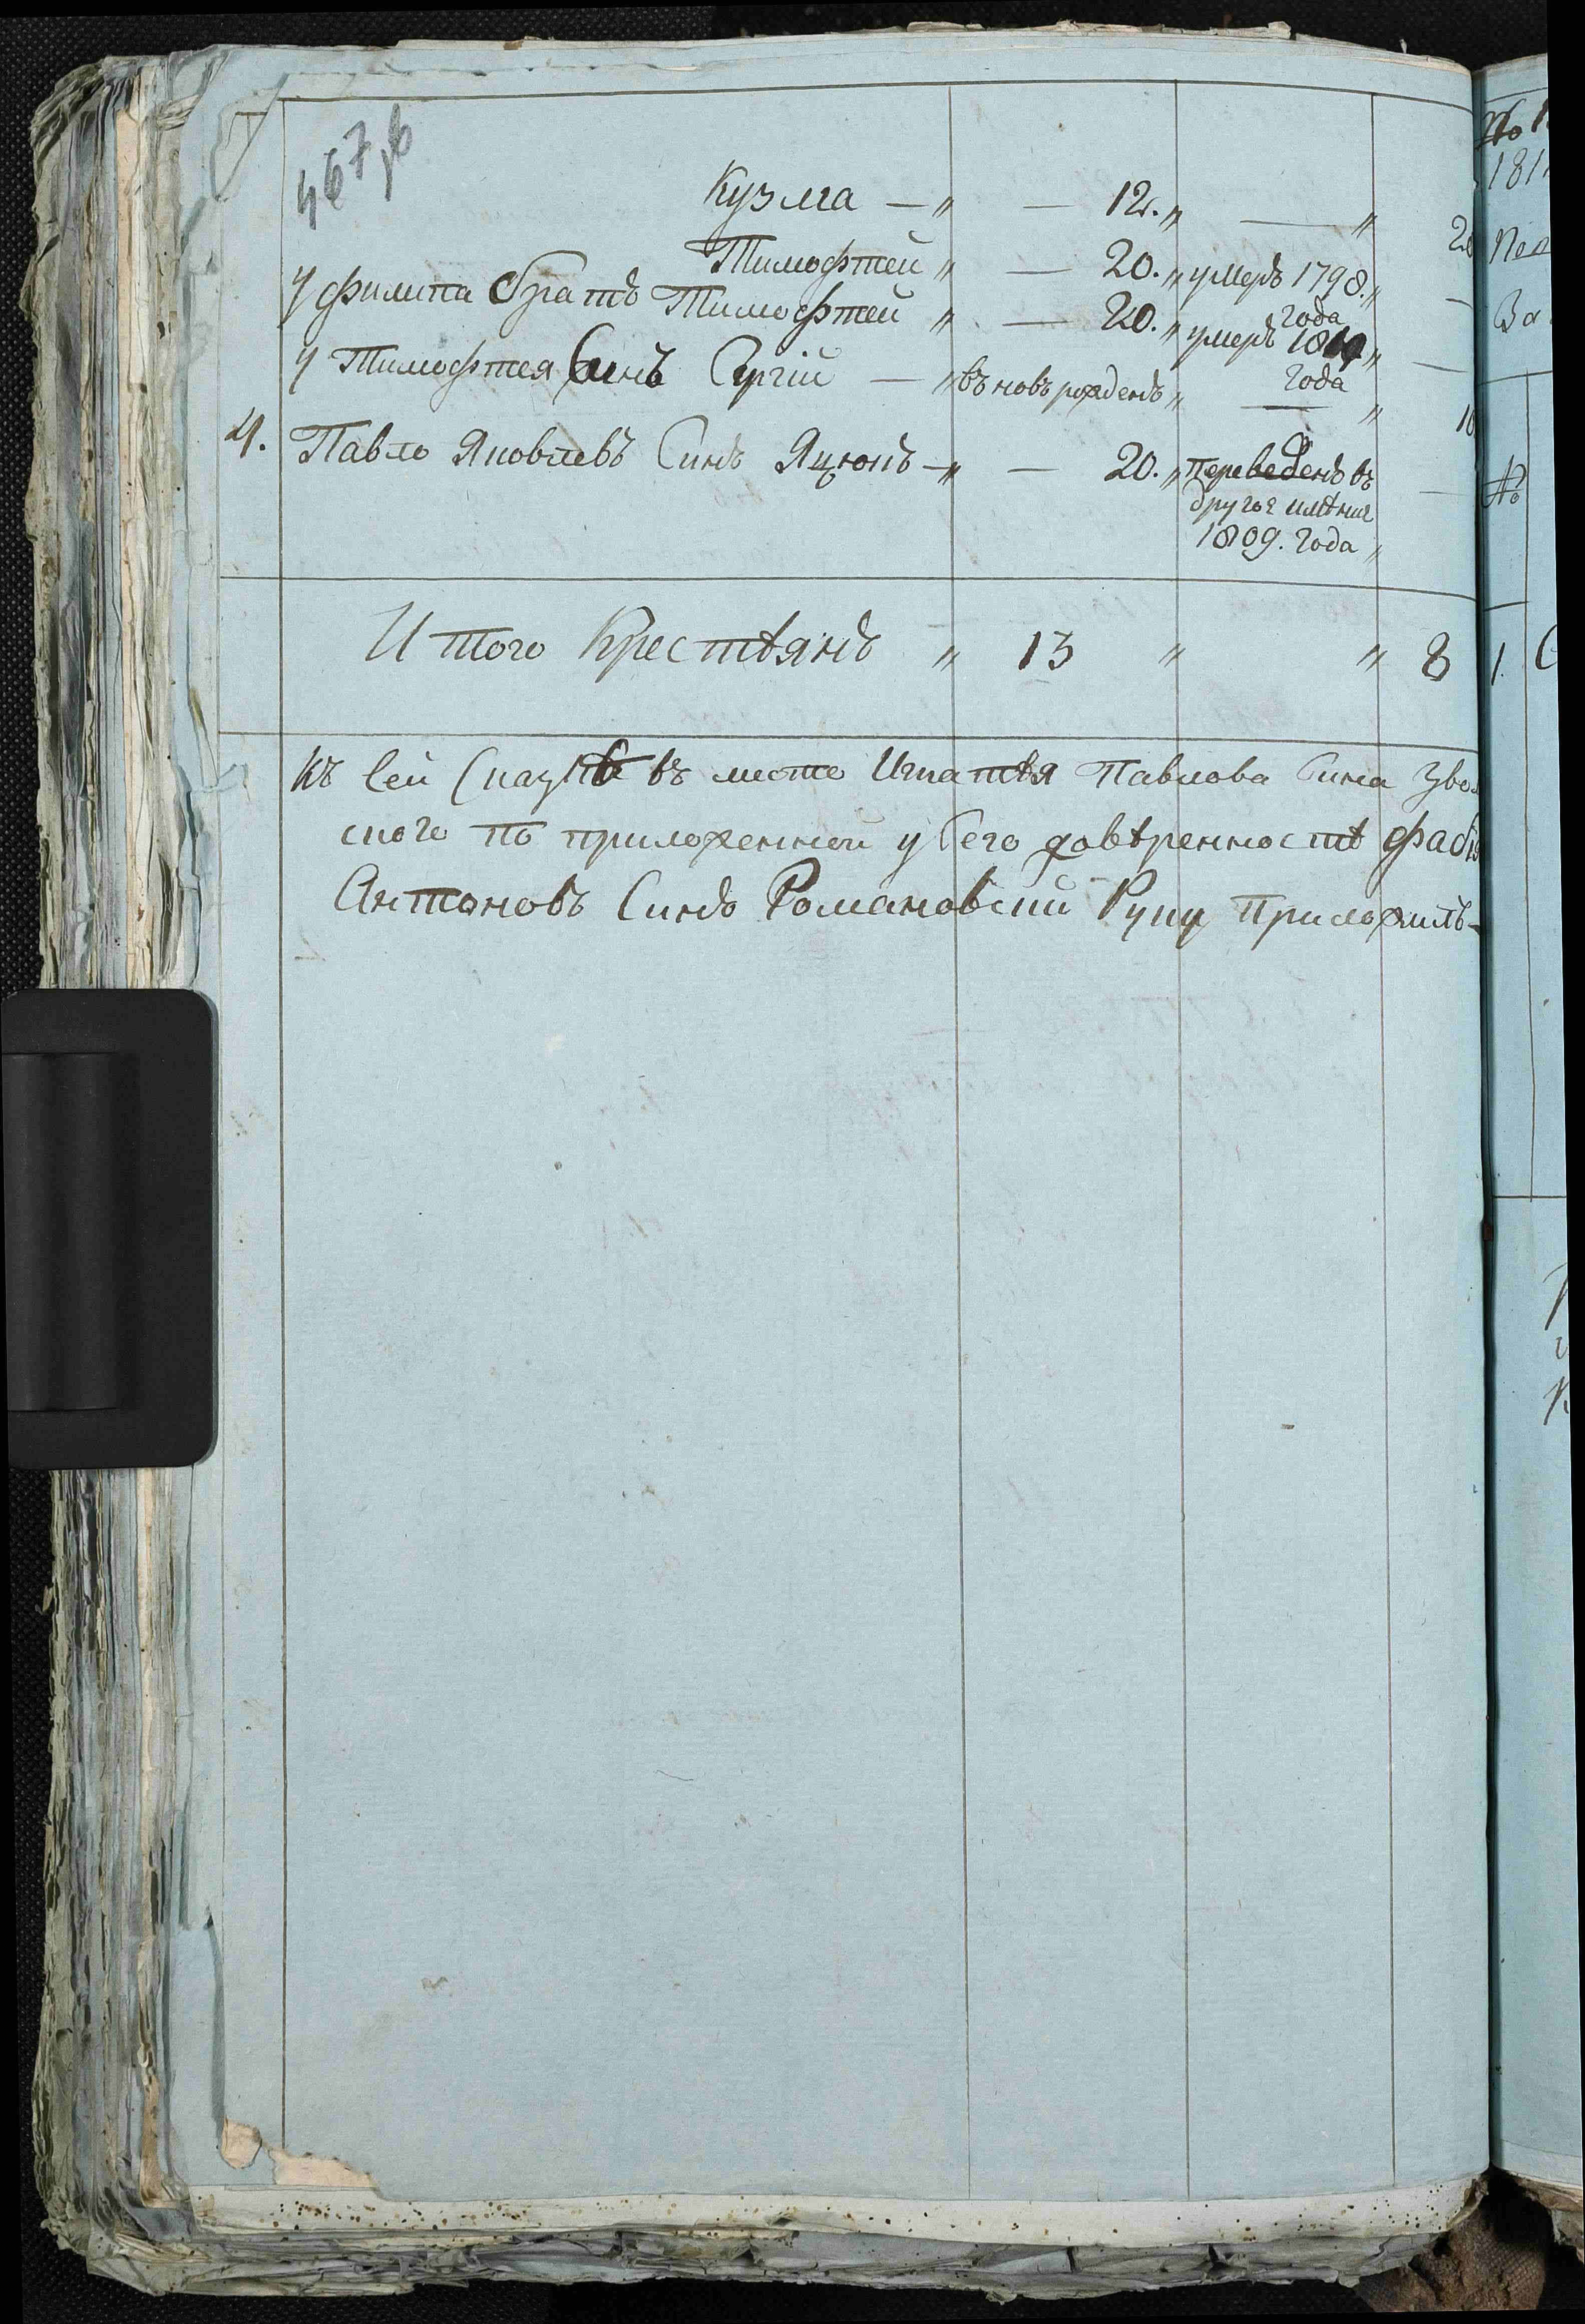 467,б
Кузма — „ — 12. „ — „
Тимофтей „ — 20. „ умеръ 1798. „ —
года
у Филипа братъ Тимофтей „ — 20. „ умеръ „ —
года
у Тимофтея Синъ Сергій — „ въновъ рожденъ „ — „
4. Павло Яковлевъ Синъ Яцюкъ — „ — 20. „ переведенъ въ —
другое имѣние
1809. года „
И того Крестѣянъ „ 13 „ „ 8
Къ Сей Сказкѣ въ место Игнатѣя Павлова Сина
ского по приложенной у Сего довѣренностѣ
Антоновъ Синъ Романовский Руку Приложилъ-